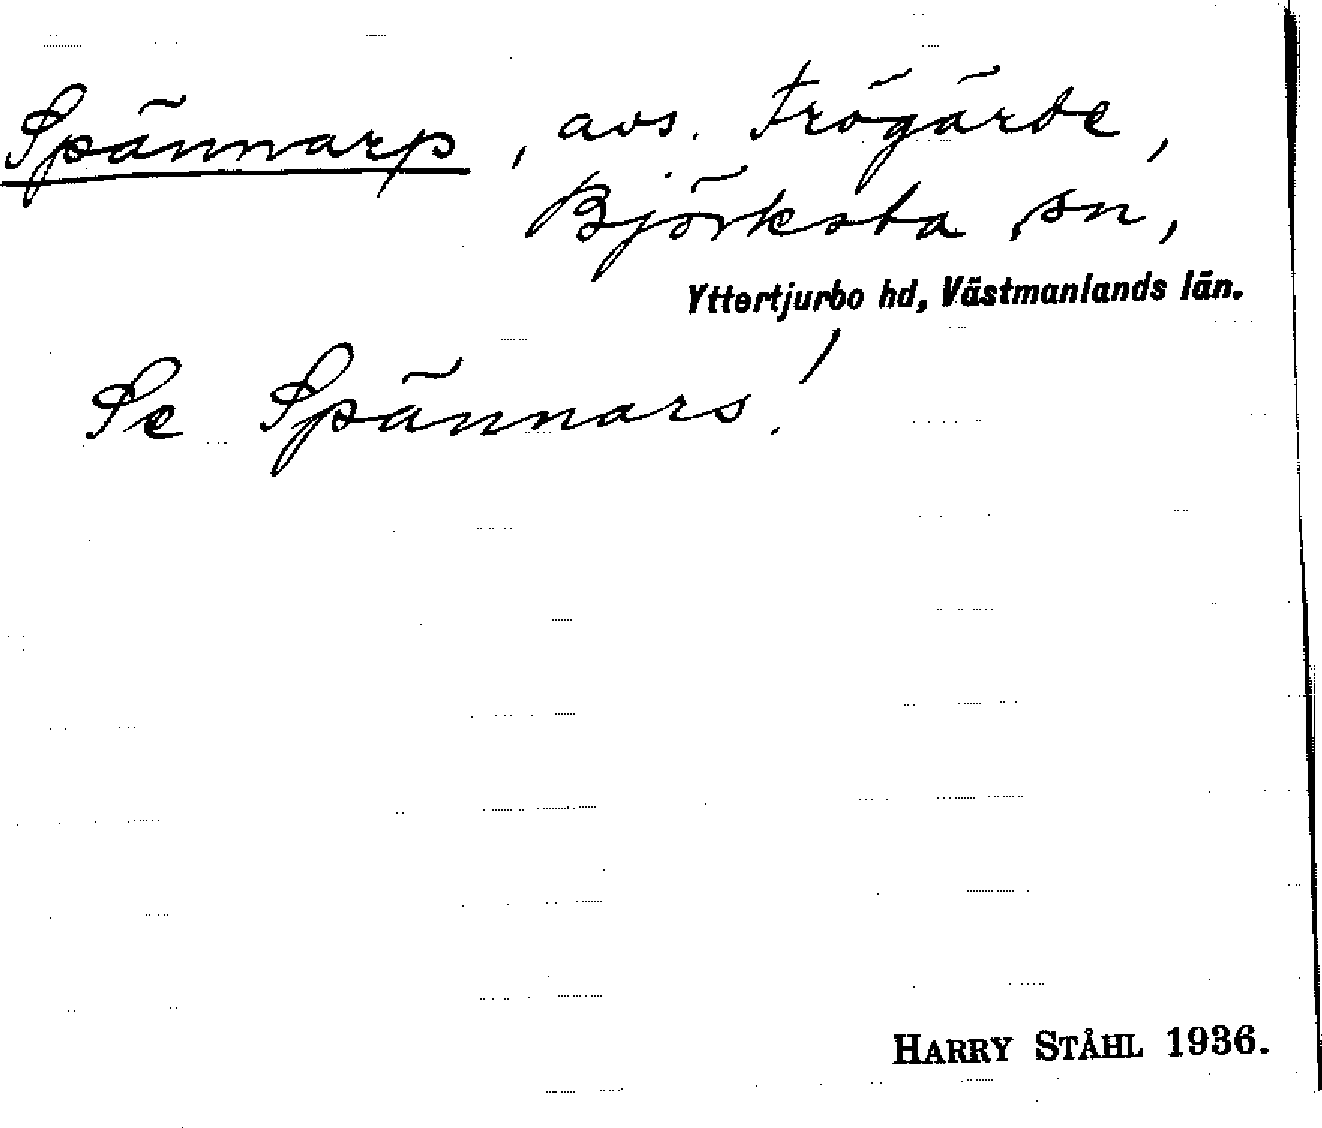 Spännarp, avs. Frögärde,
Björksta sn,
Yttertjurbo hd, Västmanlands län.
Se Spännars!
HARRY STÅHL 1936.